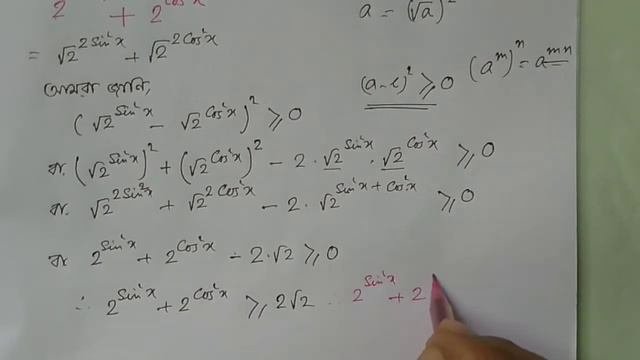 2^{Sin²x} + 2^{Cos²x}
a = (√a)²
= √2^{2Sin²x} + √2^{2Cos²x}
আমরা জানি,
(a-b)² ≥ 0
(a^m)^n = a^{mn}
(√2^{Sin²x} - √2^{Cos²x})² ≥ 0
বা, (√2^{Sin²x})² + (√2^{Cos²x})² - 2 · √2^{Sin²x} · √2^{Cos²x} ≥ 0
বা, √2^{2Sin²x} + √2^{2Cos²x} - 2 · √2^{Sin²x + Cos²x} ≥ 0
বা, 2^{Sin²x} + 2^{Cos²x} - 2·√2 ≥ 0
∴ 2^{Sin²x} + 2^{Cos²x} ≥ 2√2 2^{Sin²x} + 2